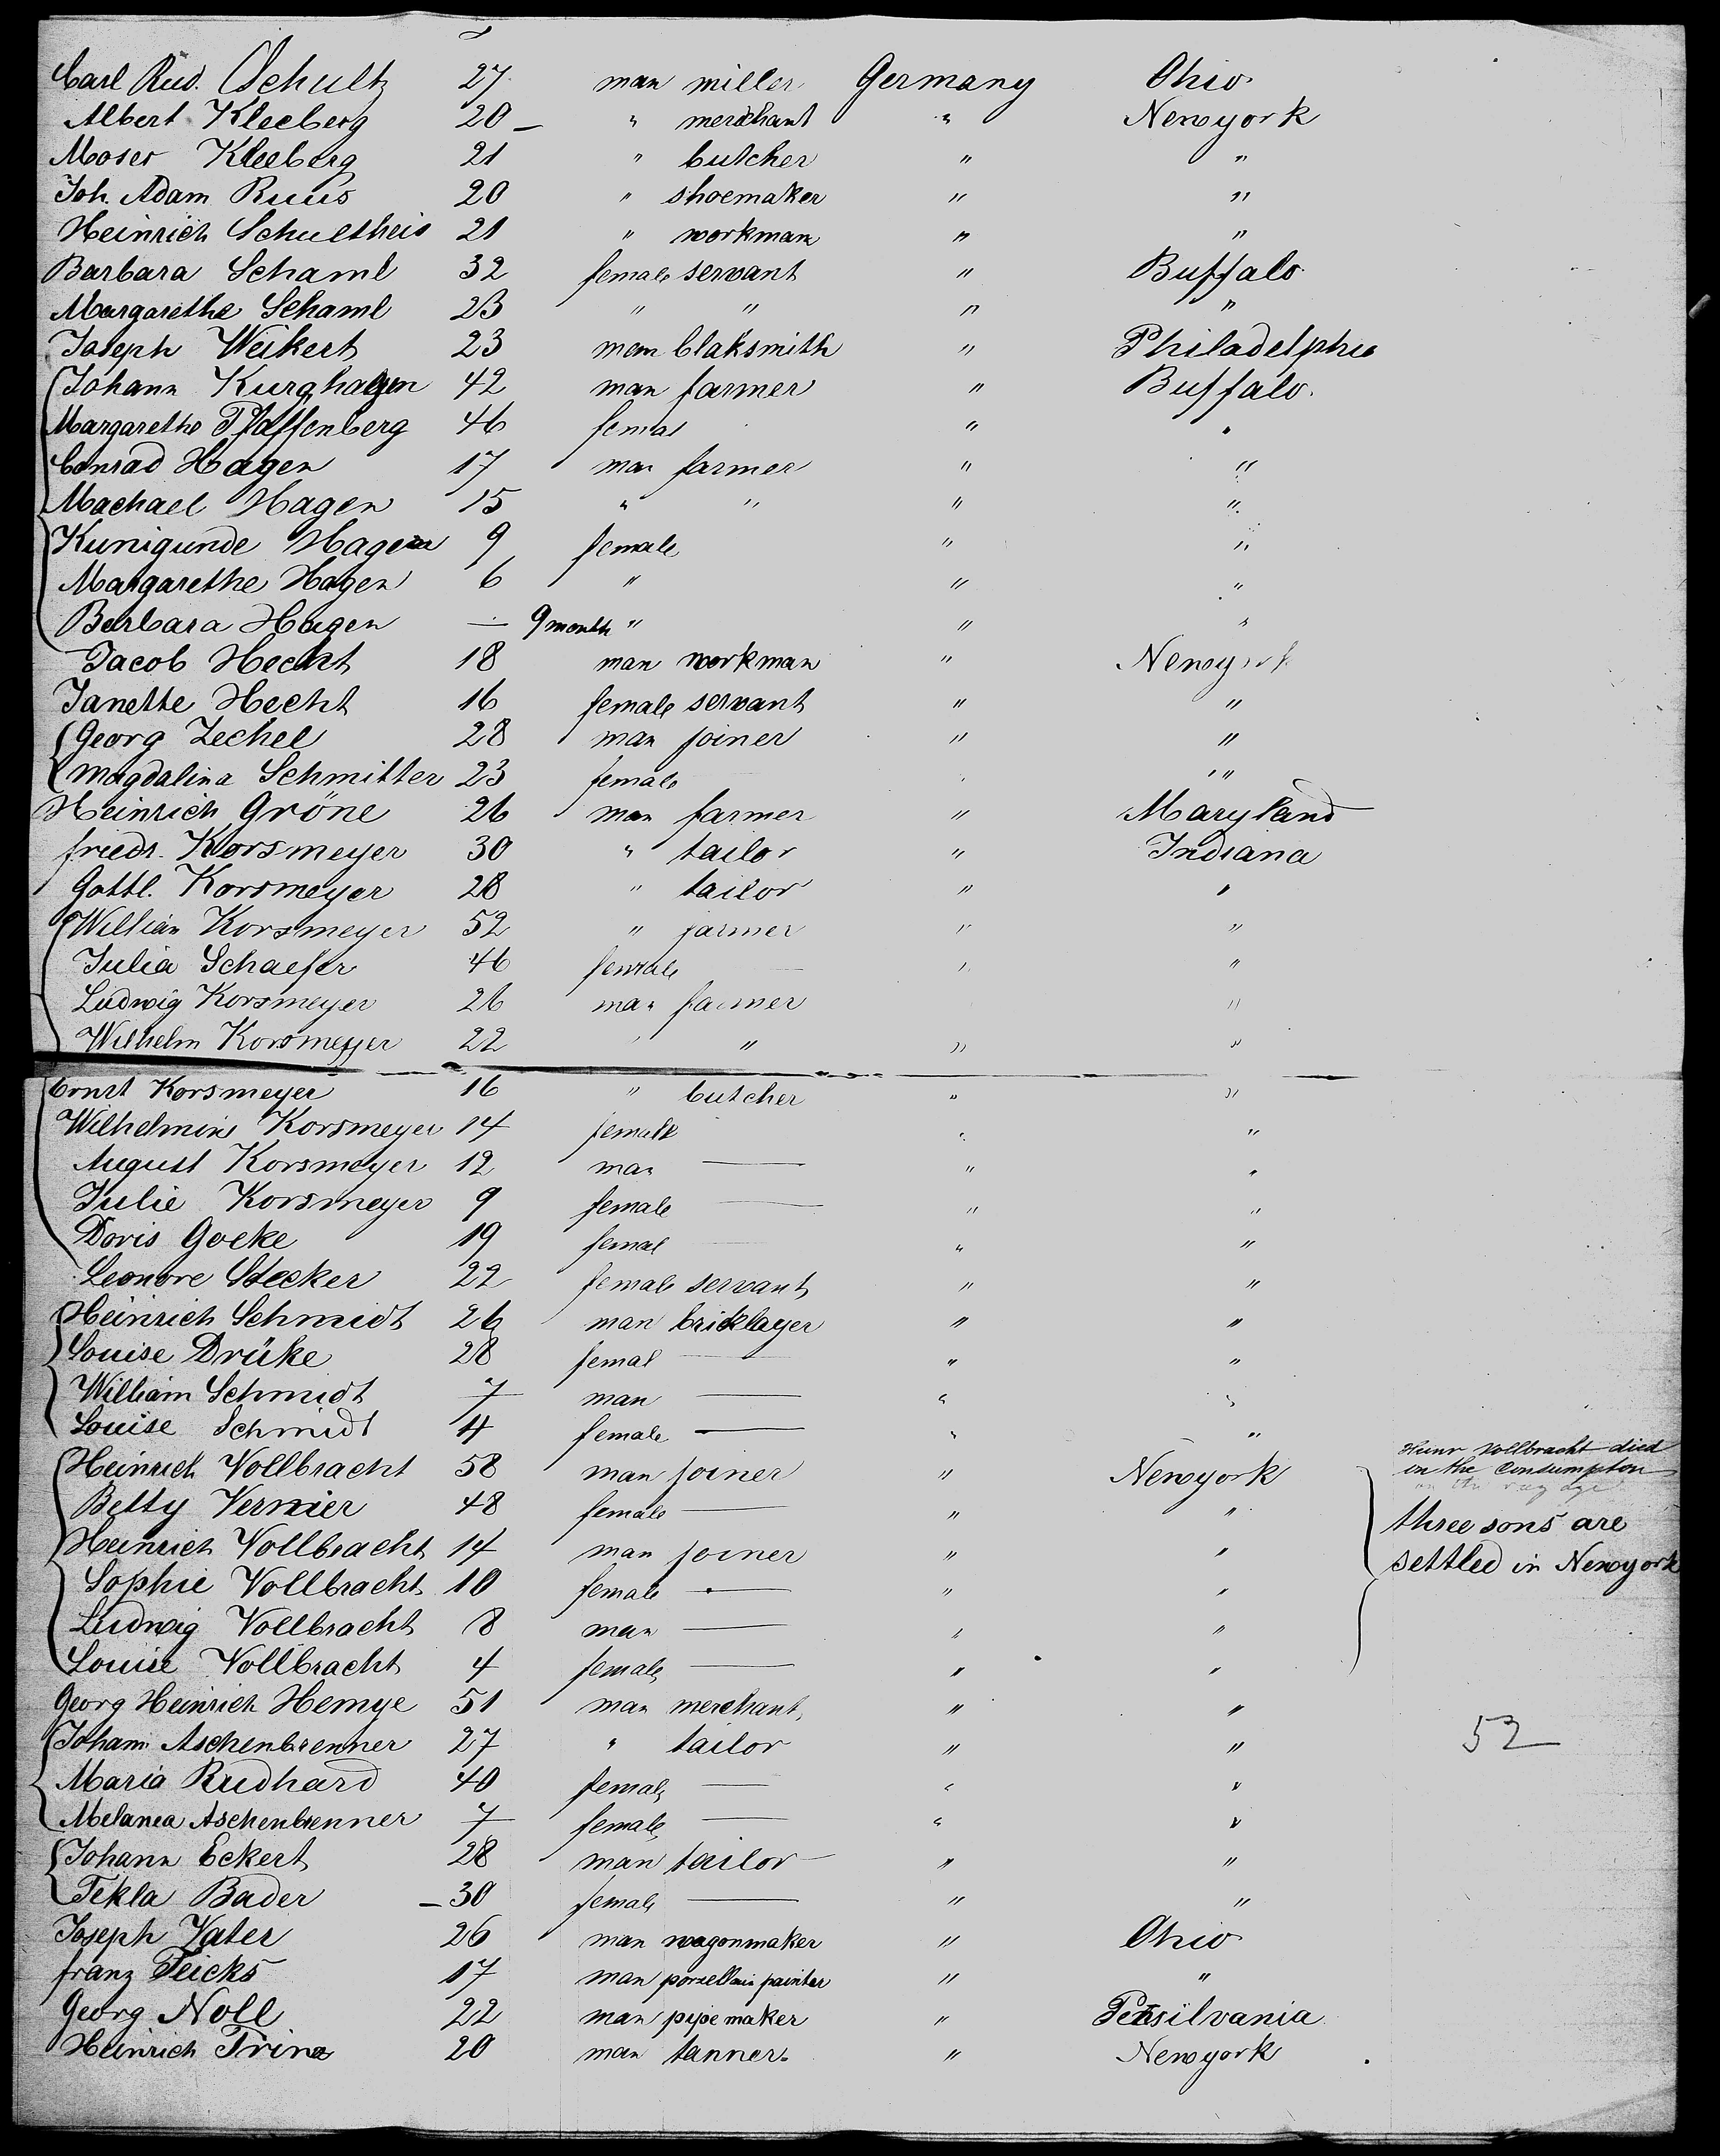 Carl Rud. Schultz 27 man miller Germany Ohio
Albert Kleeberg 20 — " merchant " Newyork
Moses Kleeberg 21 " butcher " "
Joh. Adam Ruus 20 " shoemaker " "
Heinrich Schultheis 21 " workman " "
Barbara Schaml 32 female servant " Buffalo
Margarethe Schaml 23 " " " "
Joseph Weikert 23 man blaksmith " Philadelphia
Johann Kurghagen 42 man farmer " Buffalo.
Margarethe Pfaffenberg 46 femal " "
Conrad Hagen 17 man farmer " "
Machael Hagen 15 " " " "
Kunigunde Hagen 9 female " "
Margarethe Hagen 6 " " "
Barbara Hagen — 9 month " " "
Jacob Hecht 18 man workman " Newyork
Janette Hecht 16 female servant " "
Georg Zechel 28 man joiner " "
Magdalina Schmitter 23 female " "
Heinrich Gröne 26 man farmer " Maryland
friedr. Korsmeyer 30 " tailor " Indiana
Gottl. Korsmeyer 28 " tailor " "
William Korsmeyer 52 " farmer " "
Julia Schaefer 46 female — " "
Ludwig Korsmeyer 26 man farmer "
Wilhelm Korsmeyer 22 " " " "
Ernst Korsmeyer 16 " butcher " "
Wilhelmin Korsmeyer 14 female " "
August Korsmeyer 12 man — " "
Julie Korsmeyer 9 female — " "
Doris Goeke 19 femal " "
Leonore Stecker 22 female servant " "
Heinrich Schmidt 26 man bricklayer " "
Louise Drüke 28 femal — " "
William Schmidt 7 man — " "
Louise Schmidt 4 female — " "
Heinrich Vollbracht 58 man joiner " Newyork Heinr Vollbracht died
in the Consumption
Betty Vernier 48 female — " "
three sons are
Heinrich Vollbracht 14 man joiner " "
settled in Newyork
Sophie Vollbracht 10 female — " "
Ludwig Vollbracht 8 man — " "
Louise Vollbracht 4 female — " "
Georg Heinrich Hemye 51 man merchant " "
Johann Aschenbrenner 27 " tailor " " 52
Maria Rudhard 40 female — " "
Melanea Aschenbrenner 7 female — " "
Johann Eckert 28 man tailor " "
Tekla Bader — 30 female — " "
Joseph Vater 26 man wagonmaker " Ohio
franz Feicks 17 man porzellain painter " "
Georg Noll 22 man pipe maker " Pensilvania
Heinrich Trinz 20 man tanner. " Newyork